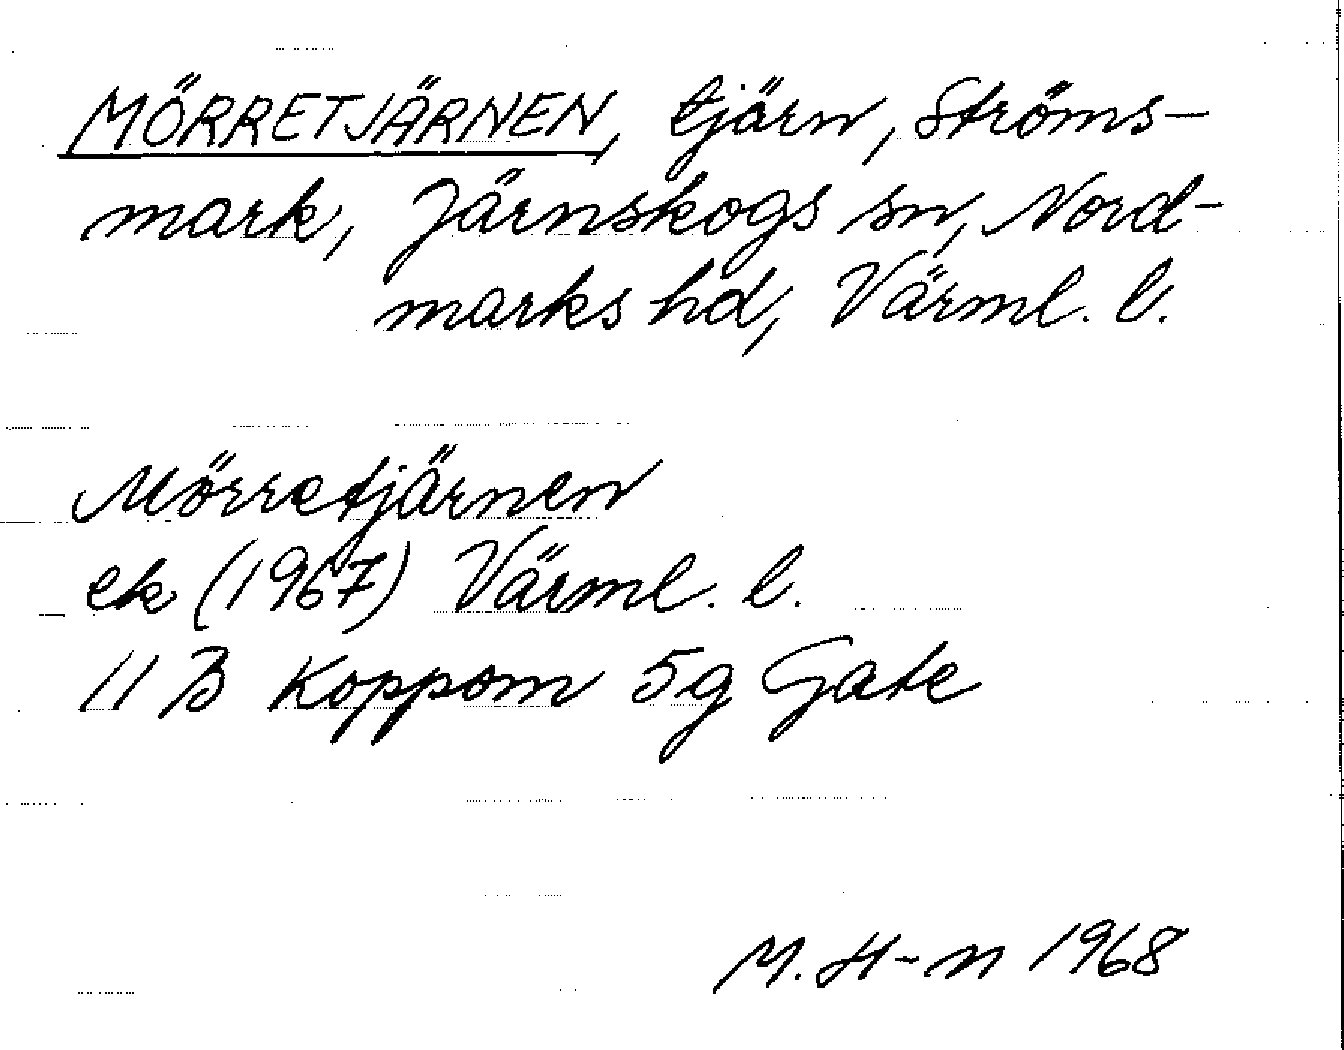 MÖRRETJÄRNEN, tjärn, Ströms-
mark, Järnskogs sn, Nord-
marks hd, Värml. l.
Mörretjärnen
ek (1967) Värml. l.
11 B Koppom 5g Gate
M. H-n 1968